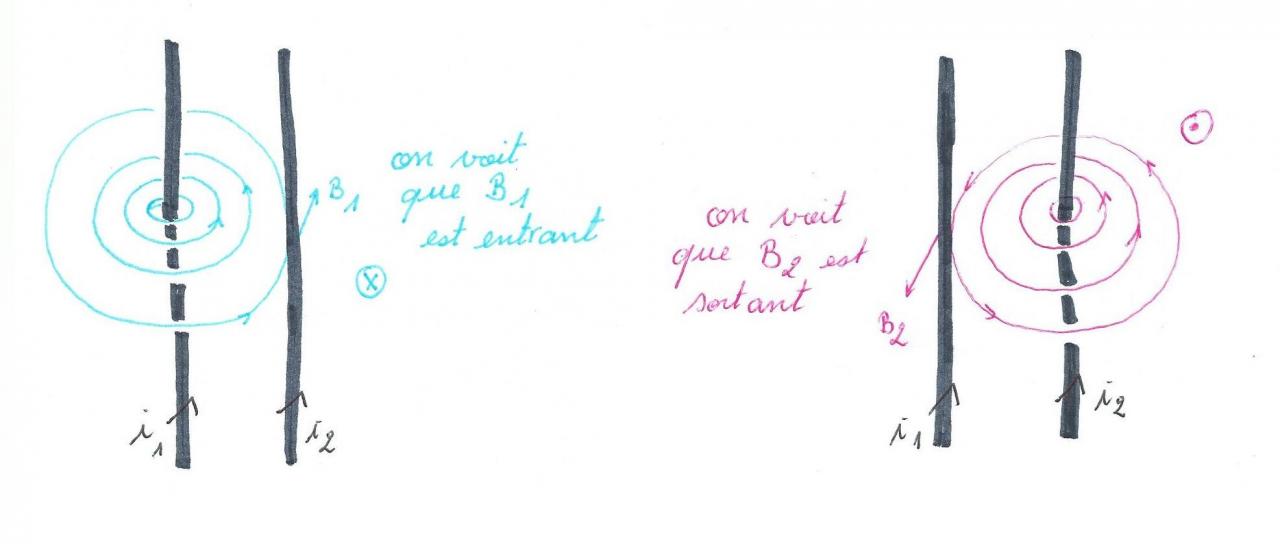 on voit
que B1
est entrant
B1
X
i1
i2
on voit
que B2 est
sortant
B2
i1
i2